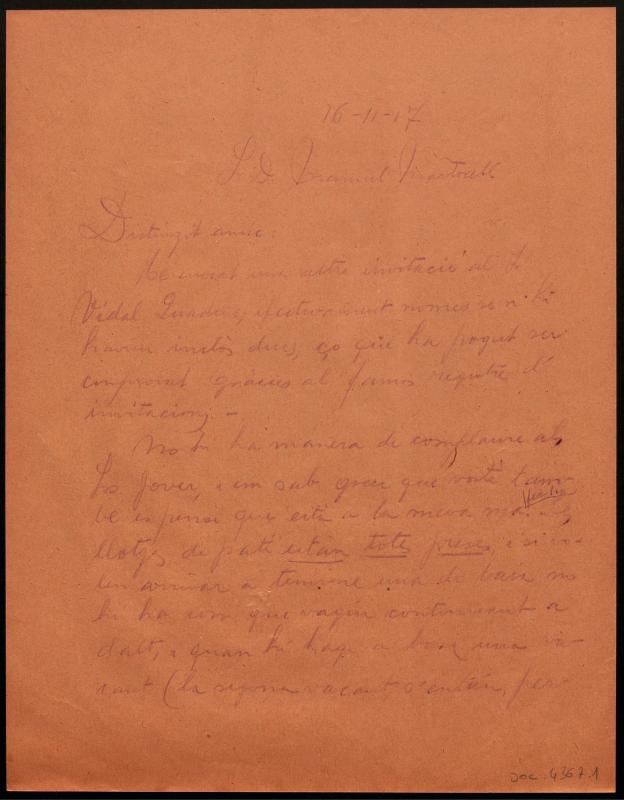 16-11-17
Sr. D. Manuel Martorell
Distingit amic:
He enviat una altre invitació al Sr
Vidal Quadras, efectivament nomes se n'hi
havien inclòs dues, ço que ha pogut ser
comprovat gràcies al famós registre d'
invitacions. –
No hi ha manera de complaure als
Srs Jover, i em sab greu que vosté tam-
be es pensi que està a la meva mà. Les
llotges de pati estan totes preses, i si vo-
len arrivar a tenirne una de baix no
hi ha com que vagin continuant a
dalt, i quan hi hagi a baix una va-
cant (la segona vacant s'entén, per
Doc. 4367.1